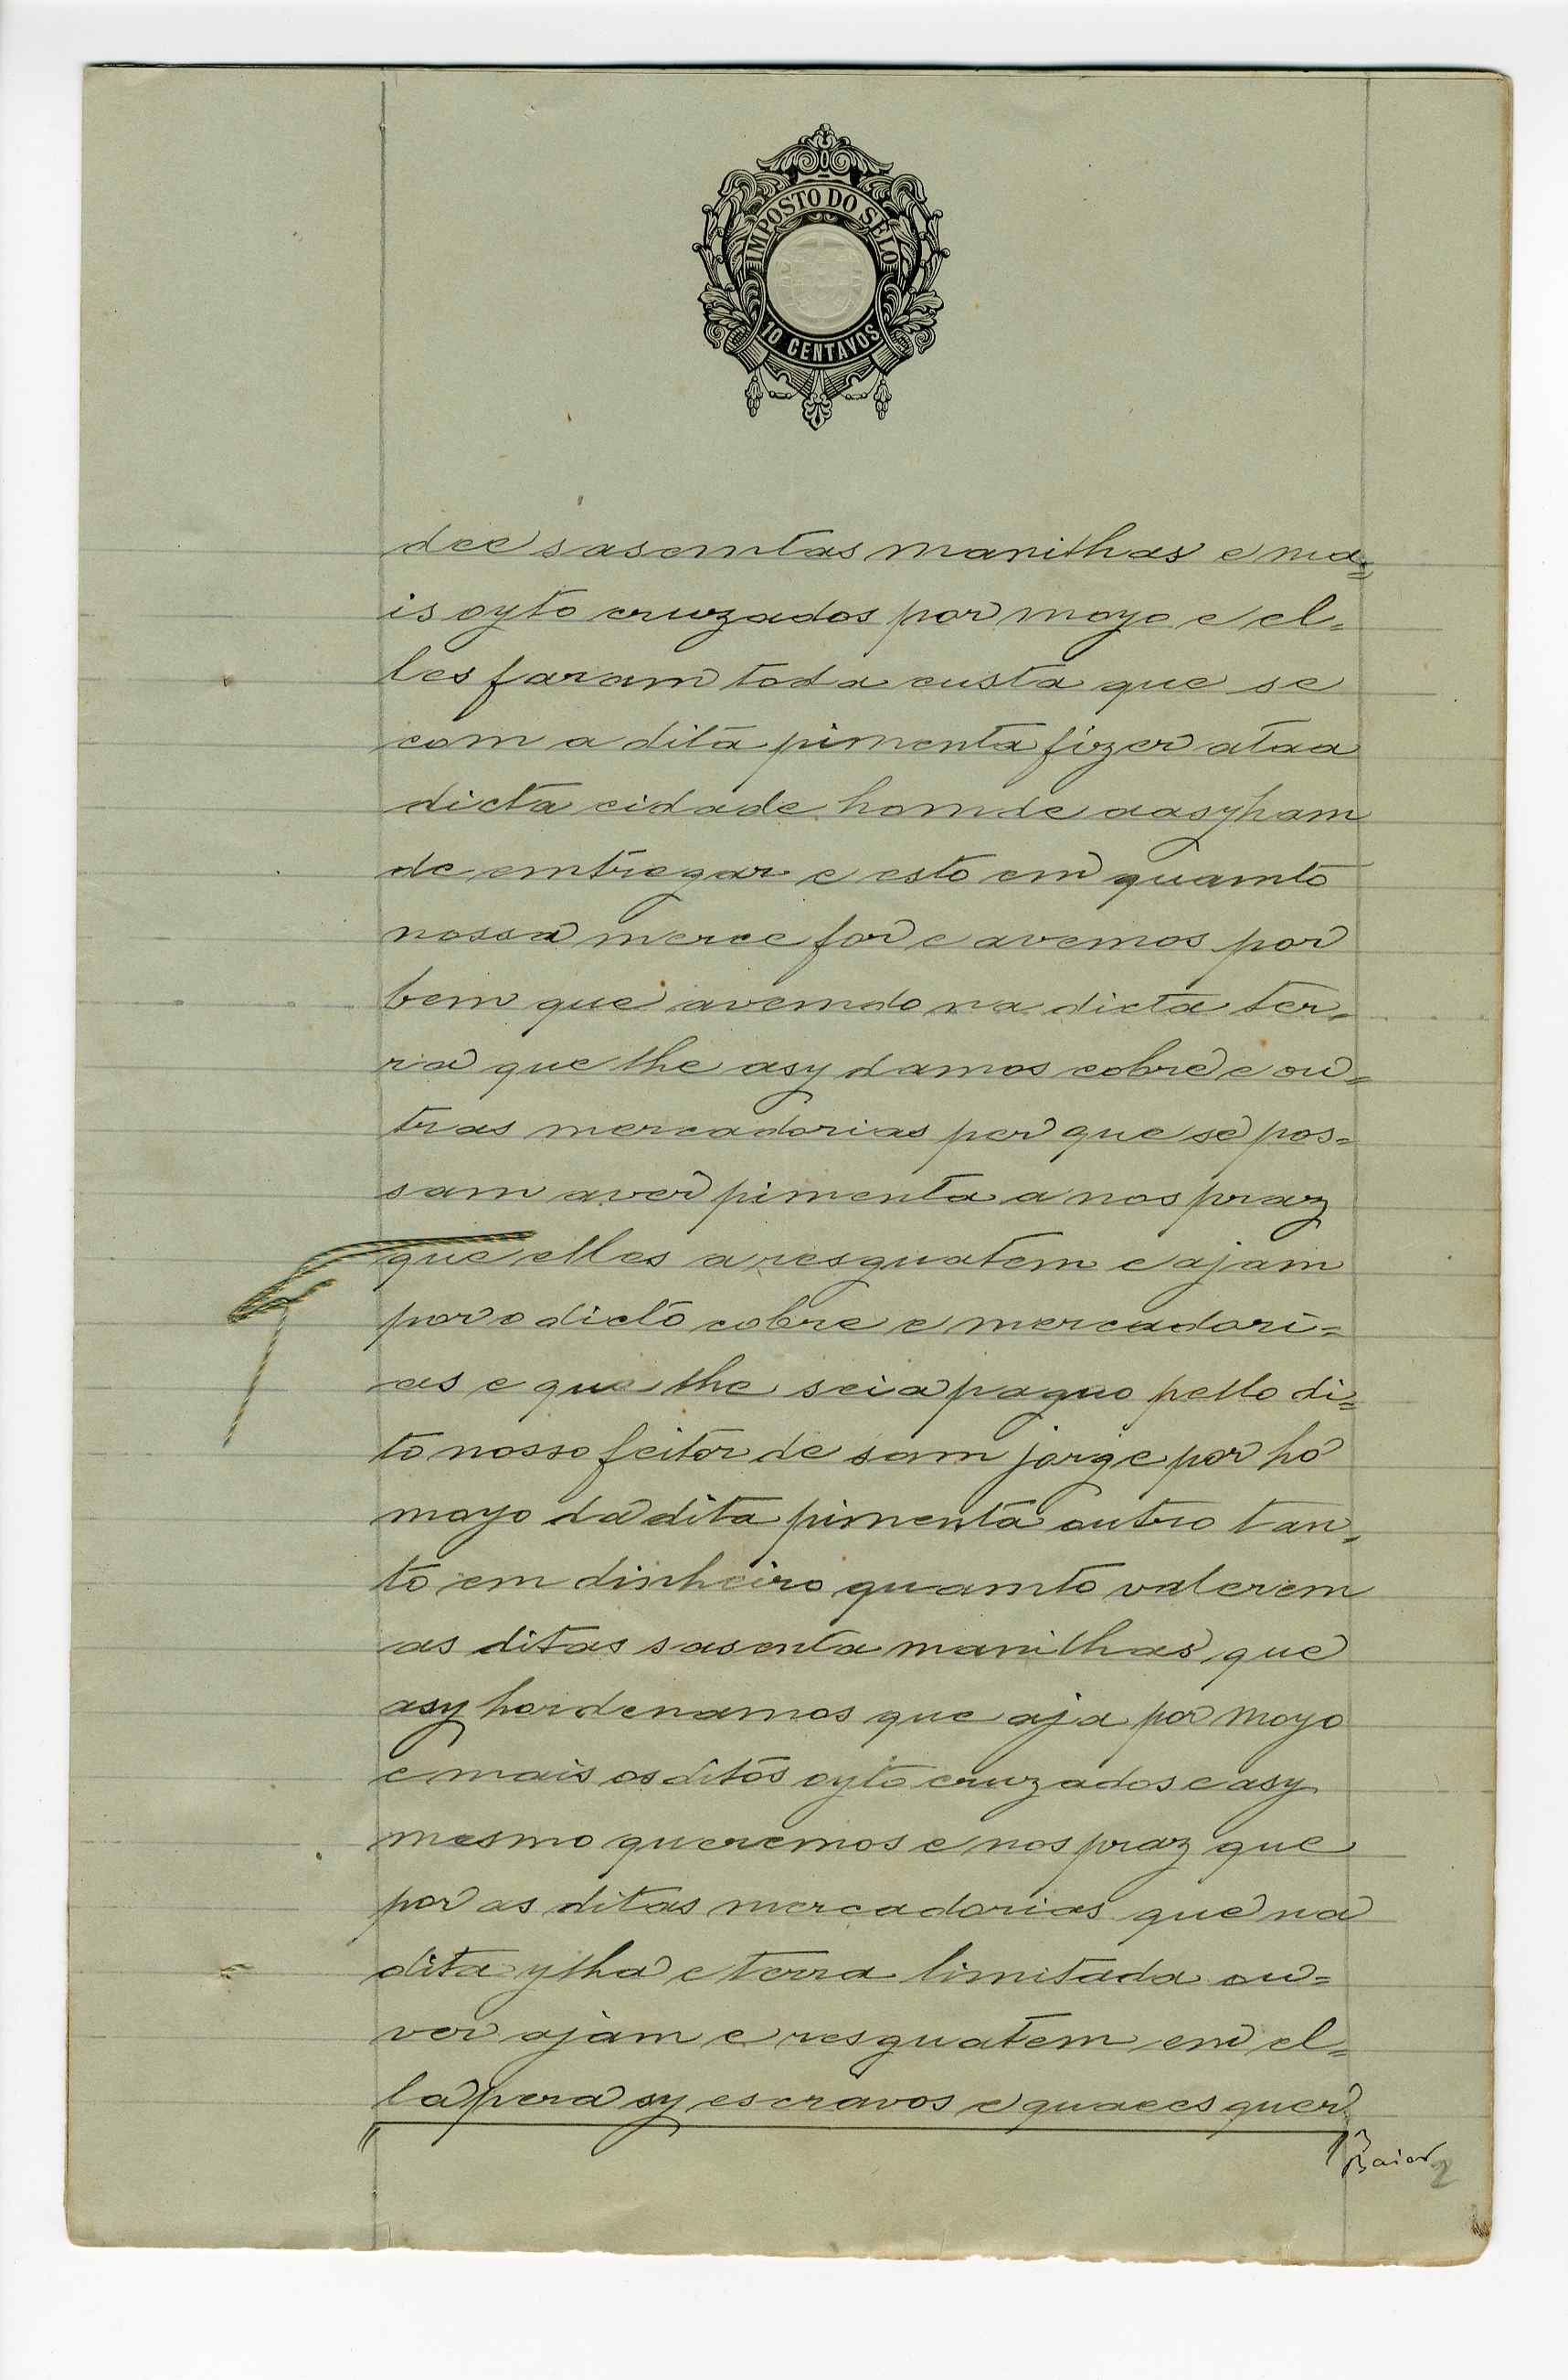 IMPOSTO DO SELO
10 CENTAVOS
dee sasemtas manilhas e ma=
is oyto cruzados por moyo e el=
les faram toda custa que se
com a dita pimenta fizer ataa
dicta cidade homde aasy ham
de emtregar e esto em quamto
nossa merce for e avemos por
bem que avemdo na dicta ter=
ra que lhe asy damos cobre e ou=
tras mercadorias per que se pos=
sam aver pimenta a nos praz
que elles a resguatem e ajam
por o dicto cobre e mercadori=
as e que lhe seia paguo pello di=
to nosso feitor de sam jorge por ho
moyo da dita pimenta outro tan=
to em dinheiro quamto valerem
as ditas sasenta manilhas que
asy hordenamos que aja por moyo
e mais os ditos oyto cruzados e asy
mesmo queremos e nos praz que
por as ditas mercadorias que na
dita ylha e terra limitada ou=
ver ajam e resguatem em el=
la pera sy escravos e quaees quer
Baião
2